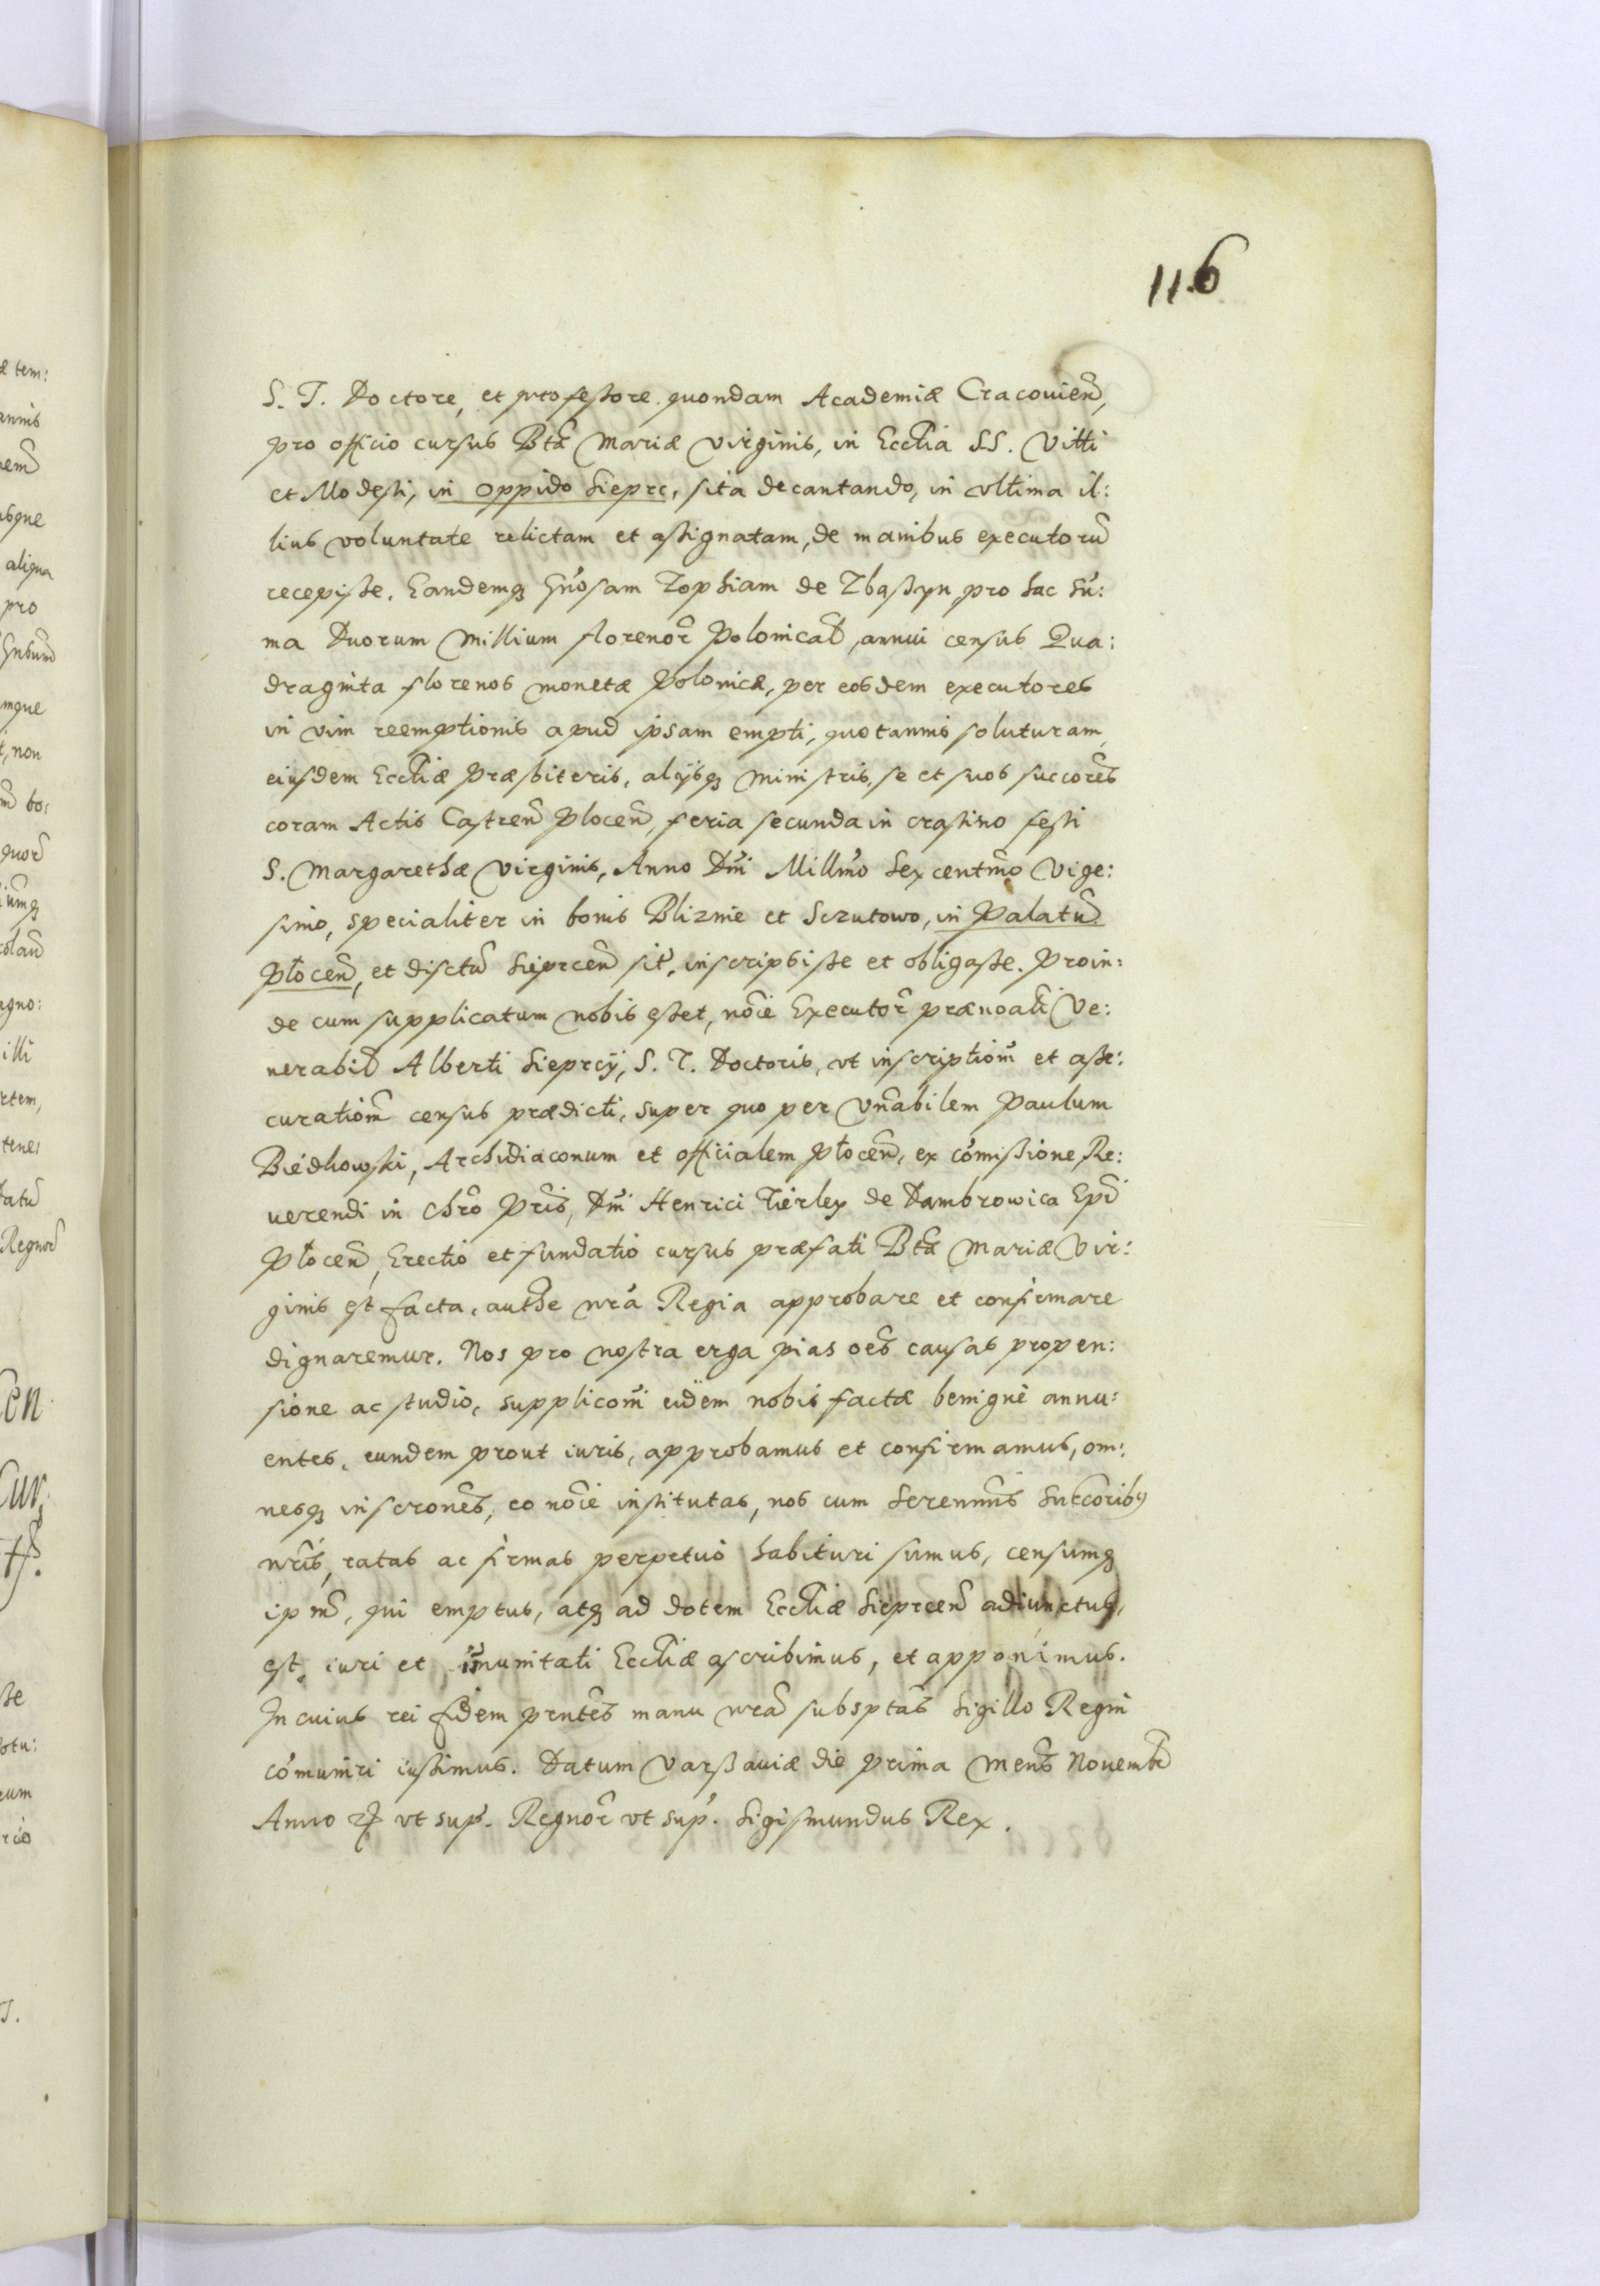 116
S. T. Doctore, et professore quondam Academiæ Cracovień,
pro officio cursus Btæ Mariæ Virginis, in Ecctia SS. Vitti
et Modesti, in oppido Sieprc, sita decantando, in vltima il:
lius voluntate relictam et assignatam, de manibus executorũ
recepisse. Eandemq Gńosam Zophiam de Zbąszyn pro hac Sũ:
ma Duorum Millium florenor̃ Polonical, annui census Qua:
draginta florenos monetæ Polonicæ, per eosdem executores
in vim reemptionis apud ipsam empti, quotannis soluturam,
eiusdem Eccliæ Præsbiteris, alijsq ministris, se et suos succores
coram Actis CastreñPloceñ, feria secunda in crastino festi
S. Margarethæ Virginis, Anno Dńi Millmo Sexcentmo Vige:
simo, specialiter in bonis Bliznie et Sczutowo, in Palatũ
Płoceñ, et disctũ Sieprceñ sit, inscripsisse et obligasse. Proin:
de cum supplicatum nobis esset, noĩe Executor̃ prænoati Ve:
nerabil Alberti Sieprcij, S. T. Doctoris, vt inscriptiom̃ et asse:
curatiom̃ census prædicti, super quo per Vnabilem Paulum
Archidiaconum et officialem Płoceñ, ex comissione Re:
uerendi in Chro Pris, Dńi Henrici Firley de Dambrowica Epi
Płoceñ, Erectio et fundatio cursus præfati Btæ Mariæ Vir:
ginis est facta, authe nrã Regia approbare et confirmare
dignaremur. Nos pro nostra erga pias oẽs causas propen:
sione ac studio, supplicom̃ eidem nobis factæ benignè annu:
entes, eundem prout iuris, approbamus et confirmamus, om:
nesq inscrones, eo noĩe institutas, nos cum Serennis Succoribq
nris, ratas ac firmas perpetuò habituri sumus, censumq
ipm̃, qui emptus, atq ad dotem Eccliæ Sieprceñ adiunctus,
est, iuri et ĩmunitati Eccliæ ascribimus, et apponimus.
In cuius rei fidem prntes manu nrã subsptas Sigillo Regni
cõmuniri iussimus. Datum Varssauiæ die prima Mens Nouembr
Anno vt sup. Regnor̃ vt sup. Sigismundus Rex.